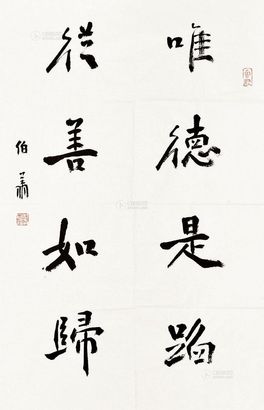 唯德是蹈
從善如歸
伯蕭